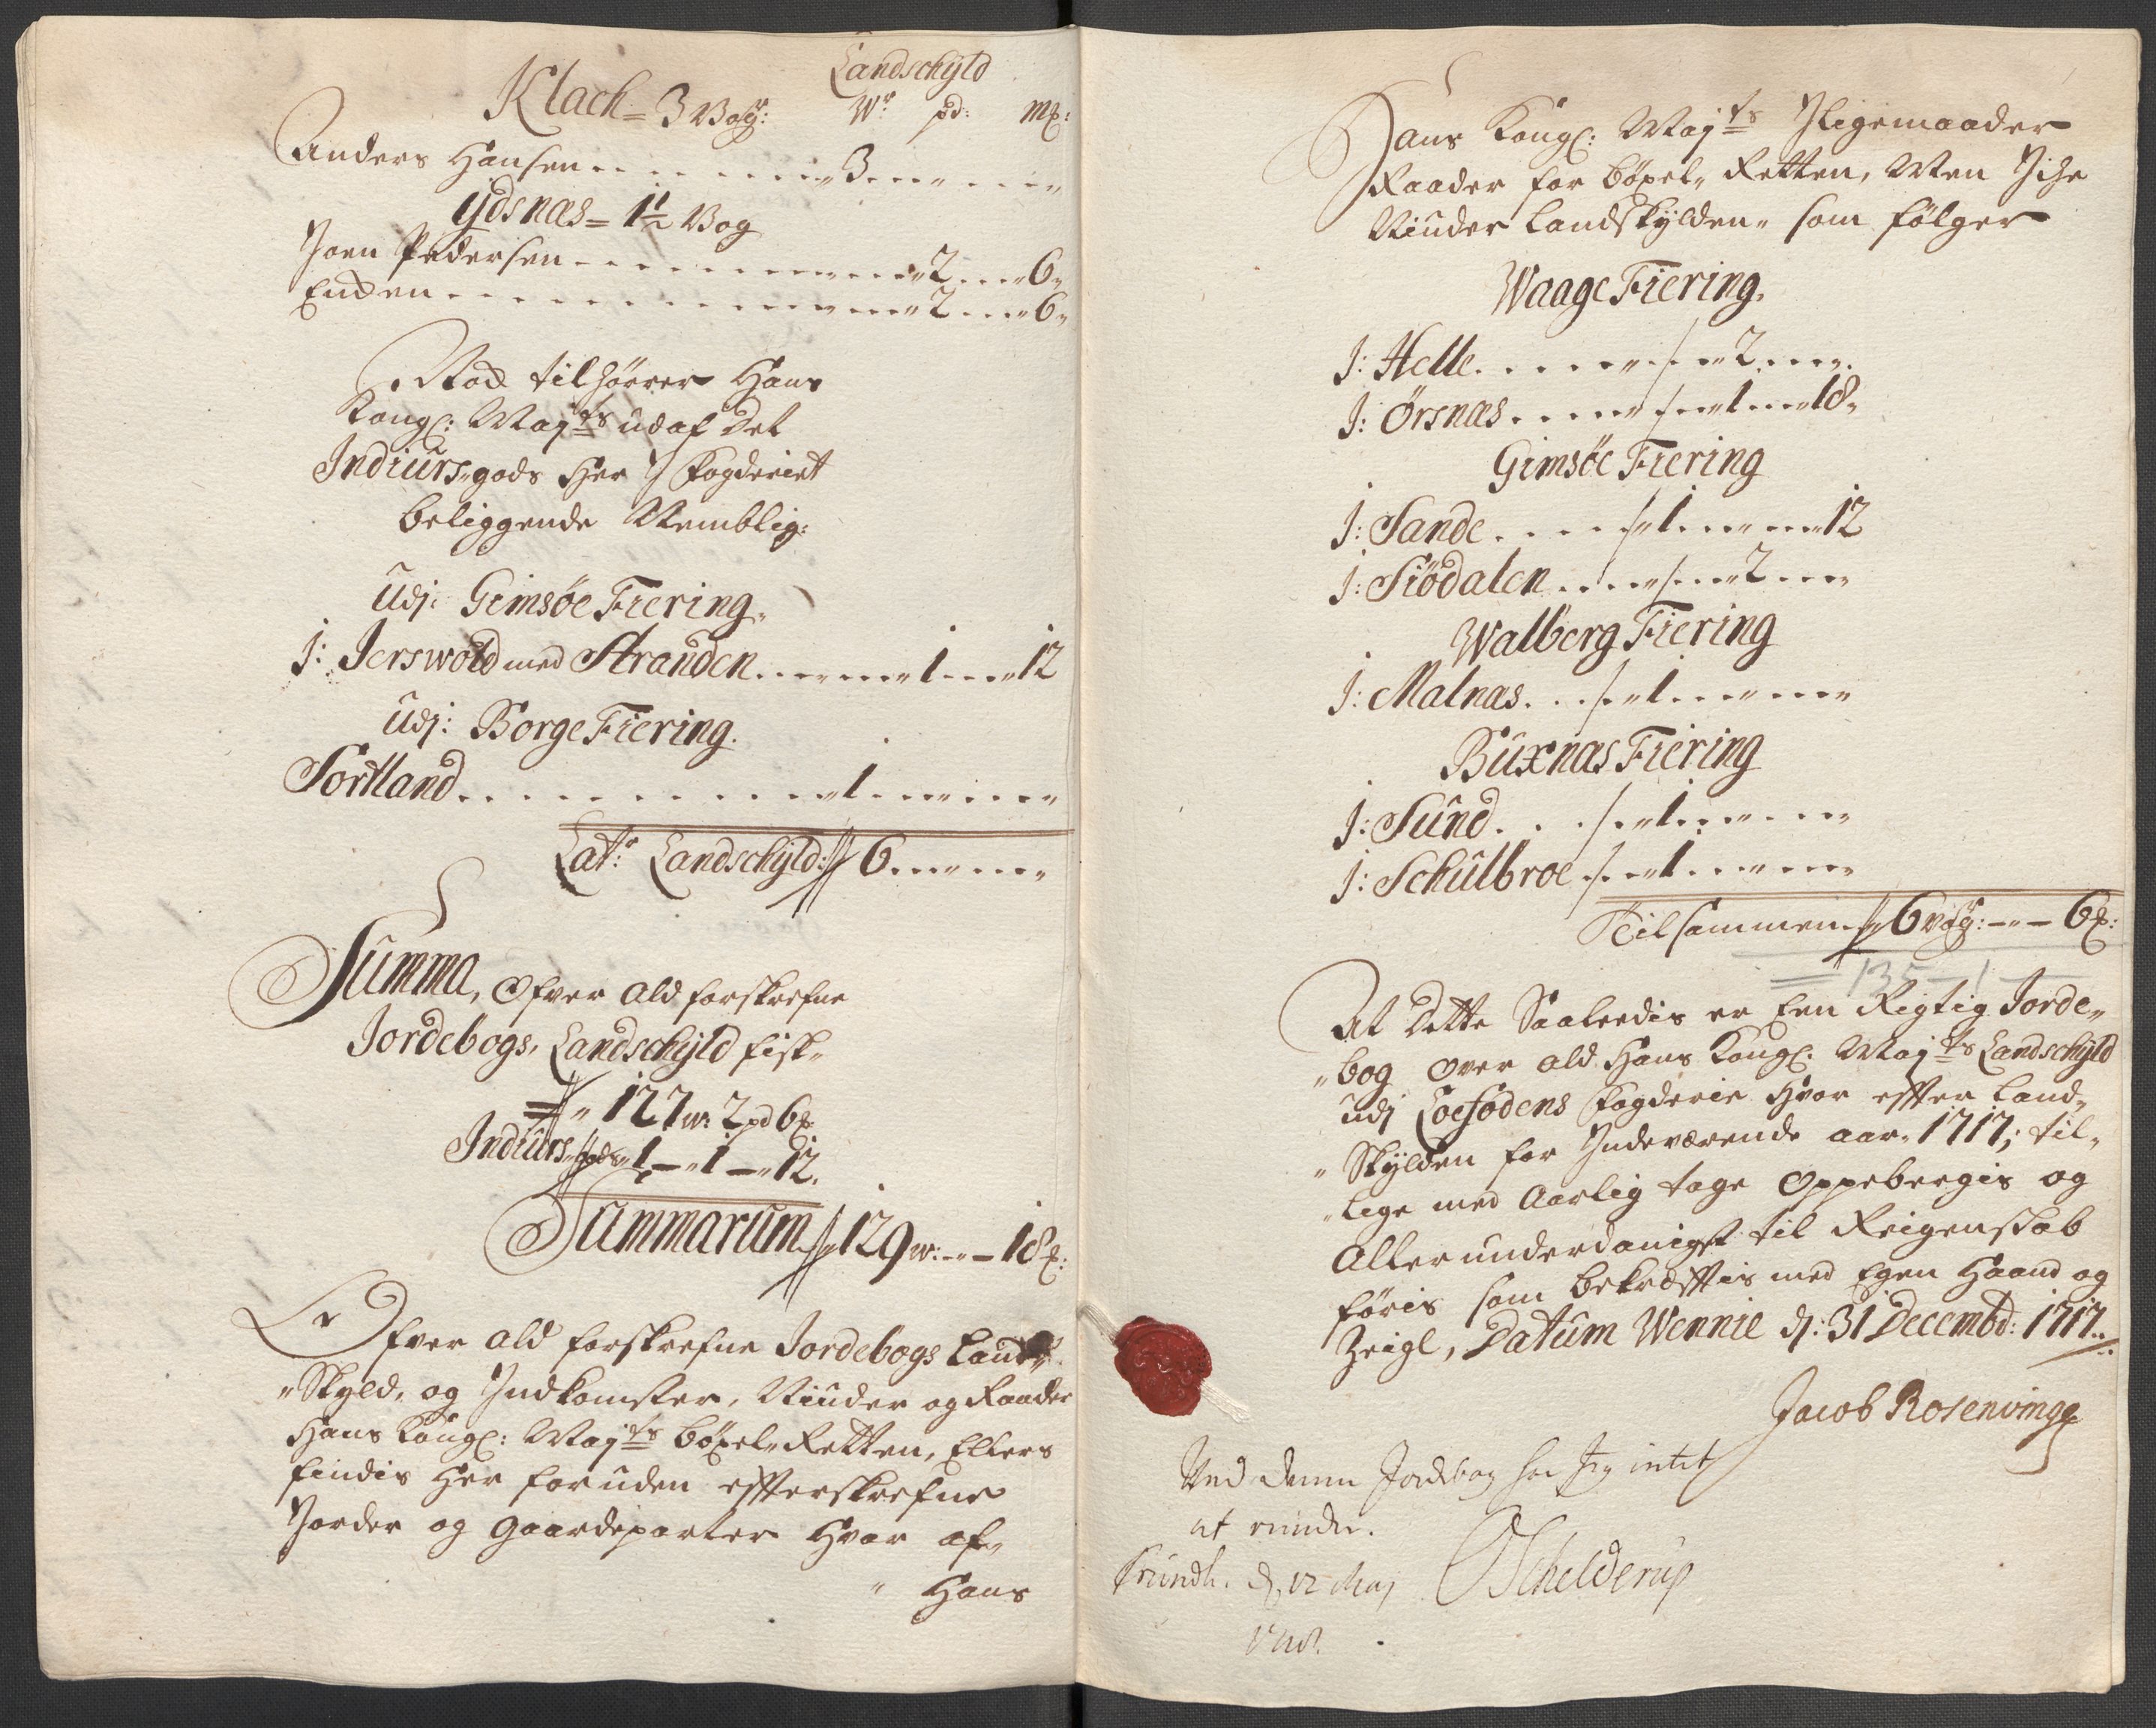 Landschyld
Klach = 3 Vog: Wr pd: mk:
Anders Hansen 3
Ydsnæs = 1½ Vog
Joen Pedersen 2 6
Enden 2 6
Noch tilhörrer Hans
Kongl: Mayts udaf det
Indiurs-gods her J Fogderiet
beliggende Nemblig:
Udj: Gimsöe Fiering
J: Jerswold med Stranden 1 12
Udj: Borge Fiering.
Sortland 1
Latr Landschyld: 6
Summa, Ofver ald forskrefne
Jordebogs, Landschyld fisk
127 w: 2 pd 6 mk
Indiurs-gods 1 - 1 - 12.
Summarum 129 w: - - 18 mk:
Ofver ald forskrefne Jordebogs Land-
Skyld, og Indkomster, Niuder og Raader
Hans Kongl: Mayts böxel-Retten, Ellers
findis her foruden effterskrefne
Jorder og Gaardeparter hvor af
Hans
Hans Kongl: Mayts Jligemaader
Raader for böxel-Retten, Men Jche
Niuder Landskylden, som fölger
Waage Fiering.
J: Helle 2
J: Örsnæs 1 18
Gimsöe Fiering
J: Sande 1 12
J: Siödalen 2
Walberg Fiering
J: Malnæs 1
Buxnæs Fiering
J: Sund 1
J: Schulbroe 1
Tilsammen 6 vog: - - 6 mk:
135 - 1 -
At dette Saaleedis er Een Rigtig Jorde-
bog over ald Hans Kongl: Mayts Landschyld
udj Loefodens fogderie hvor effter Land-
Skylden for Indeværende aar 1717, til-
lige med Aarlig tage Oppebergis og
Allerunderdanigst til Reigenskab
föris som bekræfftis med Egen Haand og
Zeigl, Datum Wennie dj: 31 Decembd: 1717.
Jacob Rosenvinge
Ved denne Jordebog har Jeg intet
at erindre.
d. 12 May
OSchelderup
1718.